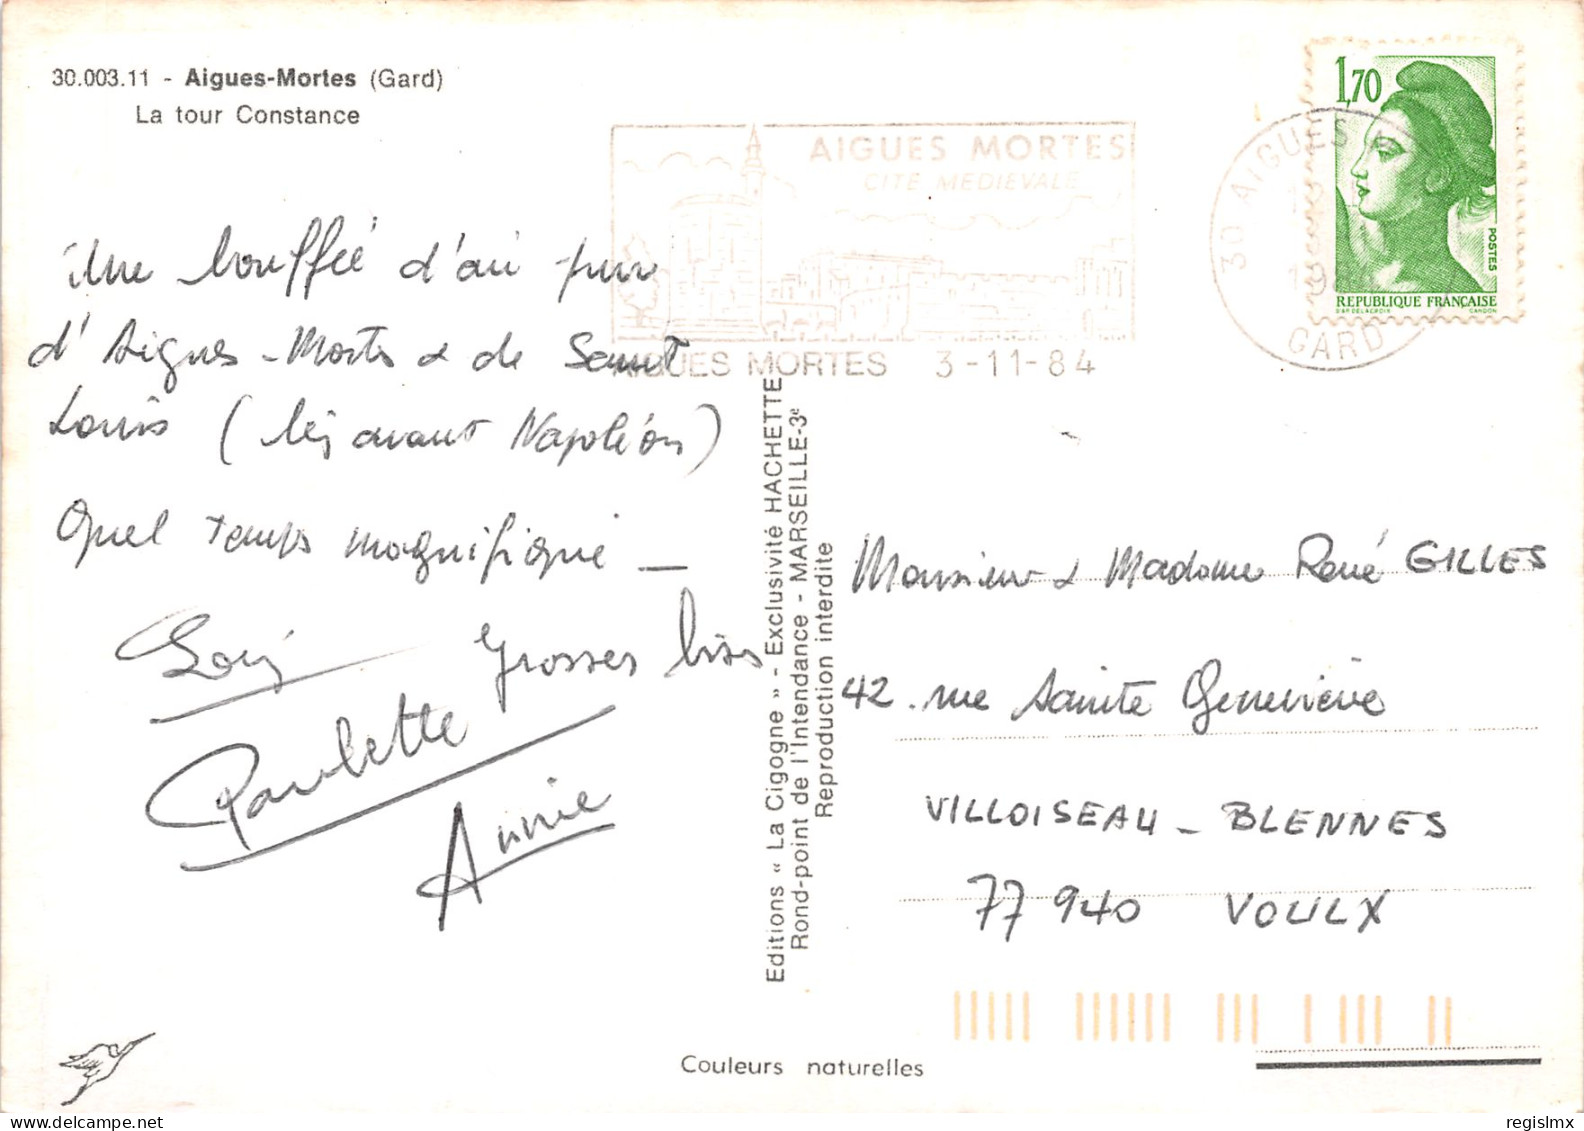 30.003.11 - Aigues-Mortes (Gard)
La tour Constance
AIGUES MORTES
CITE MEDIEVALE
AIGUES MORTES 3-11-84
30 AIGUES
GARD
1,70
POSTES
REPUBLIQUE FRANÇAISE
D'AP. DELACROIX GANDON
Une bouffée d'air pur
d'Aigues-Mortes & de Saint
Louis ( avant Napoléon)
Quel temps magnifique _
grosses bises
Paulette
Annie
Editions « La Cigogne » - Exclusivité HACHETTE
Rond-point de l'Intendance - MARSEILLE-3e
Reproduction interdite
Monsieur & Madame René GILLES
42. rue Sainte Geneviève
VILLOISEAU _ BLENNES
77 940 VOULX
Couleurs naturelles
regislmx